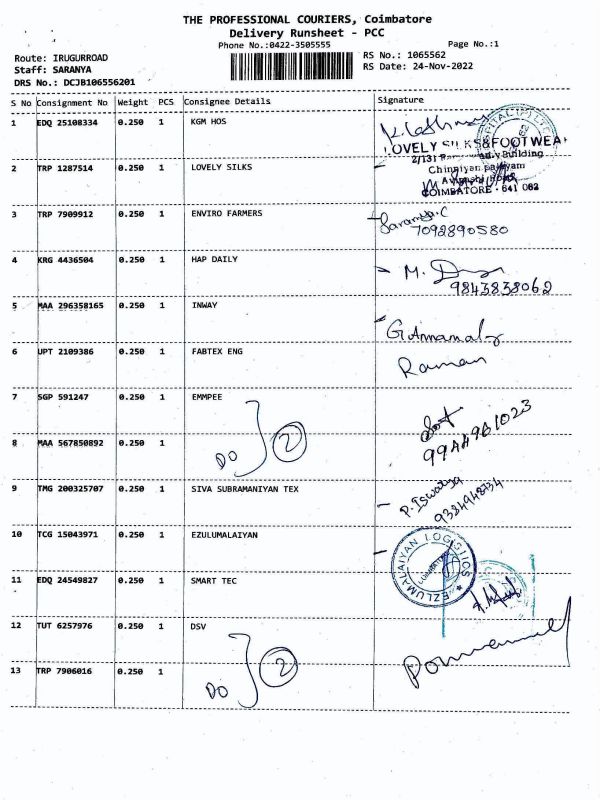 THE PROFESSIONAL COURIERS, Coimbatore
Delivery Runsheet - PCC
Phone No.:0422-3505555
Page No.:1
Route: IRUGURROAD
RS No.: 1065562
Staff: SARANYA
RS Date: 24-Nov-2022
DRS No.: DCJB106556201
S No Consignment No Weight PCS Consignee Details Signature
1 EDQ 25108334 0.250 1 KGM HOS
LOVELY SILKS&FOOTWEA
2/131
Building
2 TRP 1287514 0.250 1 LOVELY SILKS
Chinniyam
COIMBATORE - 641 062
3 TRP 7909912 0.250 1 ENVIRO FARMERS
Saranya.C
7092890580
4 KRG 4436504 0.250 1 HAP DAILY
M.
9843838062
5 MAA 296358165 0.250 1 INWAY
6 UPT 2109386 0.250 1 FABTEX ENG
Raman
7 SGP 591247 0.250 1 EMMPEE
DO 2
8 MAA 567850892 0.250 1
9 TMG 200325707 0.250 1 SIVA SUBRAMANIYAN TEX
P. Iswarya
9384948734
10 TCG 15043971 0.250 1 EZULUMALAIYAN
EZLUMALAIYAN LOGISTICS
11 EDQ 24549827 0.250 1 SMART TEC
12 TUT 6257976 0.250 1 DSV
DO 2
13 TRP 7906016 0.250 1